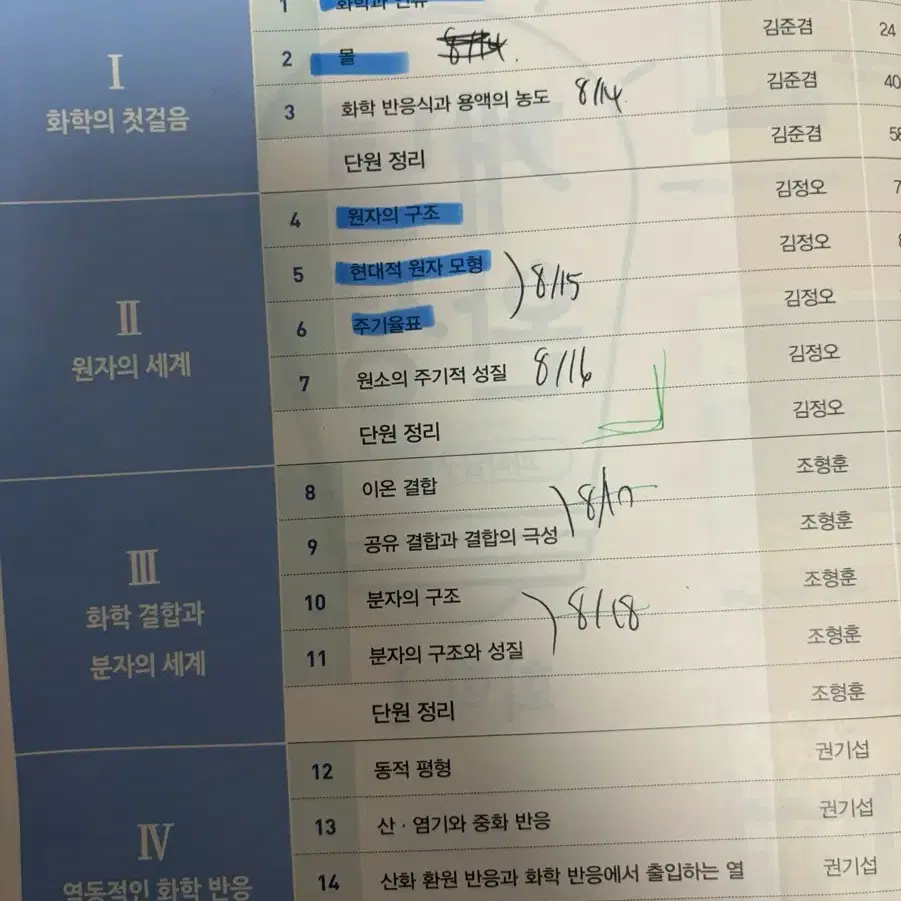 1 화학과 인류
2 몰 8/14. 김준겸 24
3 화학 반응식과 용액의 농도 8/14 김준겸 40
단원 정리 김준겸 58
I
화학의 첫걸음
4 원자의 구조 김정오
5 현대적 원자 모형 김정오
8/15
6 주기율표 김정오
7 원소의 주기적 성질 8/16 김정오
단원 정리 김정오
II
원자의 세계
8 이온 결합 조형훈
8/17
9 공유 결합과 결합의 극성 조형훈
10 분자의 구조 조형훈
8/18
11 분자의 구조와 성질 조형훈
단원 정리 조형훈
III
화학 결합과
분자의 세계
12 동적 평형 권기섭
13 산·염기와 중화 반응 권기섭
14 산화 환원 반응과 화학 반응에서 출입하는 열 권기섭
IV
역동적인 화학 반응